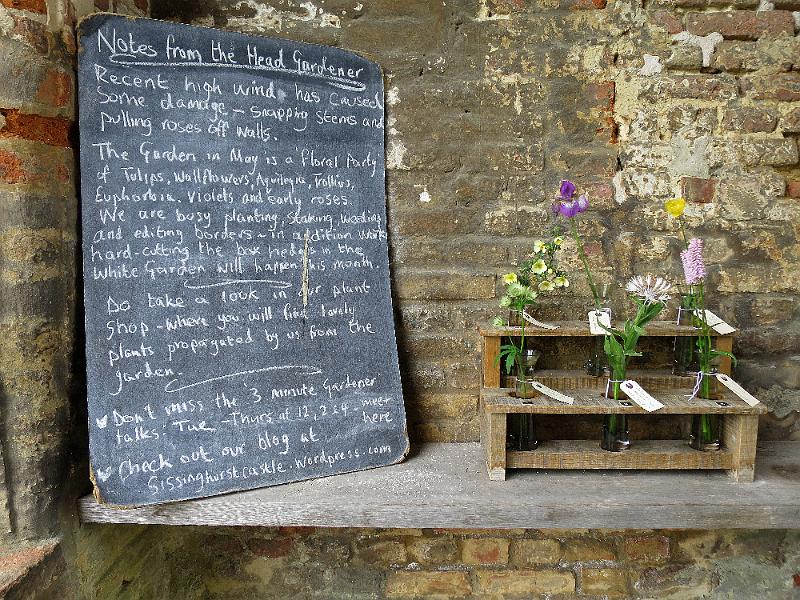 Notes from the Head Gardener
Recent high wind has caused
Some damage - snapping stems and
pulling roses off walls.
The Garden in May is a floral Party
of Tulips, Wallflowers, Aquilegia, Trollius,
Euphorbia, Violets and early roses.
We are busy planting, Staking, weeding
and editing borders - in addition work
hard-cutting the box hedges in the
White Garden will happen this month.
Do take a look in our plant
shop - where you will find lovely
plants propagated by us from the
garden.
Don't miss the '3 minute Gardener
talks: Tue - Thurs at 12, 2 & 4 - meet
here
Check out our blog at
Sissinghurstcastle.wordpress.com